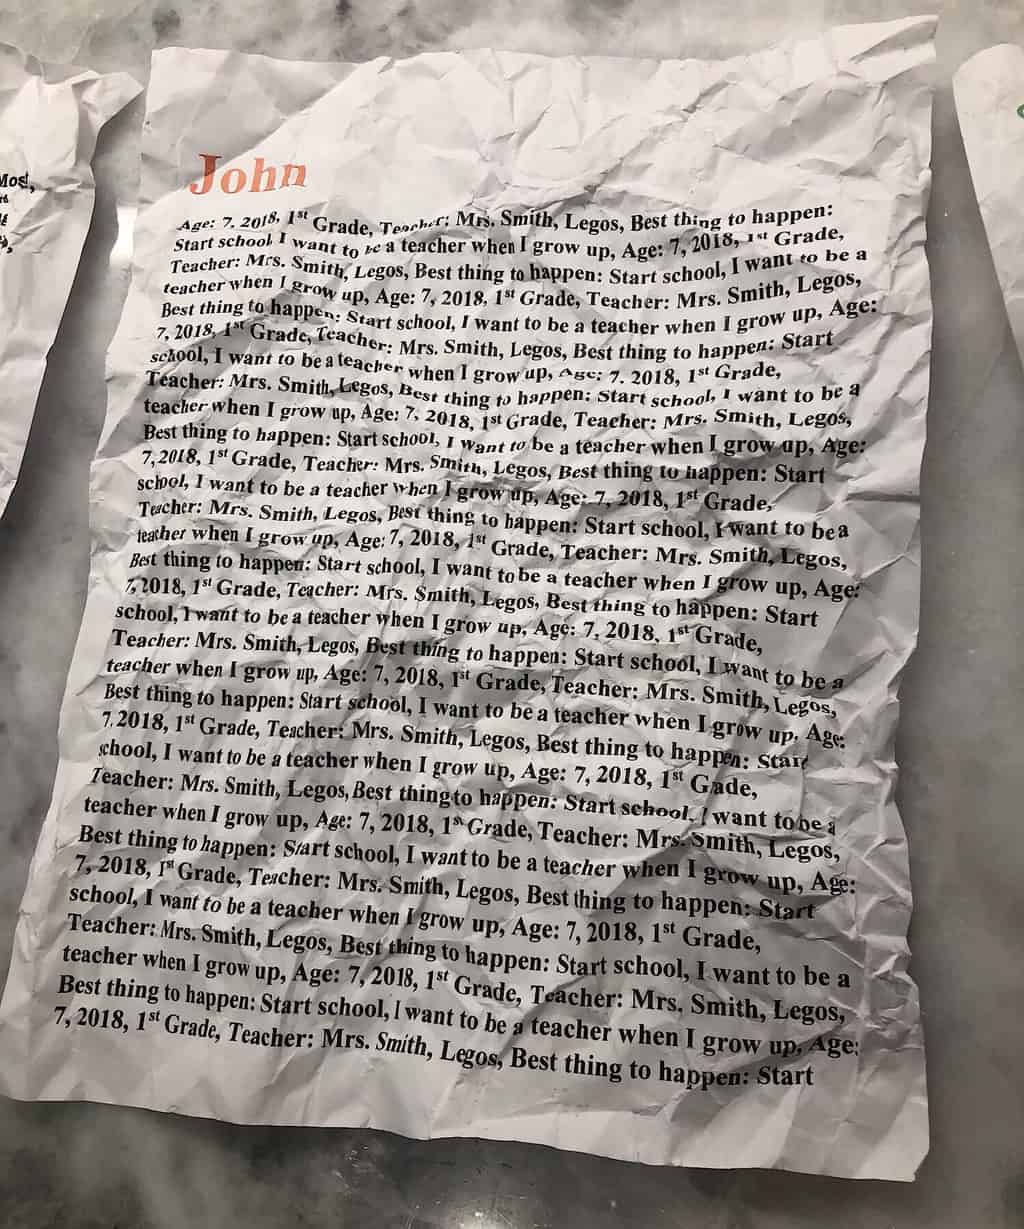 John
Age: 7, 2018, 1st Grade, Teacher: Mrs. Smith, Legos, Best thing to happen:
Start school, I want to be a teacher when I grow up, Age: 7, 2018, 1st Grade,
Teacher: Mrs. Smith, Legos, Best thing to happen: Start school, I want to be a
teacher when I grow up, Age: 7, 2018, 1st Grade, Teacher: Mrs. Smith, Legos,
Best thing to happen: Start school, I want to be a teacher when I grow up, Age:
7, 2018, 1st Grade, Teacher: Mrs. Smith, Legos, Best thing to happen: Start
school, I want to be a teacher when I grow up, Age: 7, 2018, 1st Grade,
Teacher: Mrs. Smith, Legos, Best thing to happen: Start school, I want to be a
teacher when I grow up, Age: 7, 2018, 1st Grade, Teacher: Mrs. Smith, Legos,
Best thing to happen: Start school, I want to be a teacher when I grow up, Age:
7, 2018, 1st Grade, Teacher: Mrs. Smith, Legos, Best thing to happen: Start
school, I want to be a teacher when I grow up, Age: 7, 2018, 1st Grade,
Teacher: Mrs. Smith, Legos, Best thing to happen: Start school, I want to be a
teacher when I grow up, Age: 7, 2018, 1st Grade, Teacher: Mrs. Smith, Legos,
Best thing to happen: Start school, I want to be a teacher when I grow up, Age:
7, 2018, 1st Grade, Teacher: Mrs. Smith, Legos, Best thing to happen: Start
school, I want to be a teacher when I grow up, Age: 7, 2018, 1st Grade,
Teacher: Mrs. Smith, Legos, Best thing to happen: Start school, I want to be a
teacher when I grow up, Age: 7, 2018, 1st Grade, Teacher: Mrs. Smith, Legos,
Best thing to happen: Start school, I want to be a teacher when I grow up, Age:
7, 2018, 1st Grade, Teacher: Mrs. Smith, Legos, Best thing to happen: Start
school, I want to be a teacher when I grow up, Age: 7, 2018, 1st Grade,
Teacher: Mrs. Smith, Legos, Best thing to happen: Start school, I want to be a
teacher when I grow up, Age: 7, 2018, 1st Grade, Teacher: Mrs. Smith, Legos,
Best thing to happen: Start school, I want to be a teacher when I grow up, Age:
7, 2018, 1st Grade, Teacher: Mrs. Smith, Legos, Best thing to happen: Start
school, I want to be a teacher when I grow up, Age: 7, 2018, 1st Grade,
Teacher: Mrs. Smith, Legos, Best thing to happen: Start school, I want to be a
teacher when I grow up, Age: 7, 2018, 1st Grade, Teacher: Mrs. Smith, Legos,
Best thing to happen: Start school, I want to be a teacher when I grow up, Age:
7, 2018, 1st Grade, Teacher: Mrs. Smith, Legos, Best thing to happen: Start